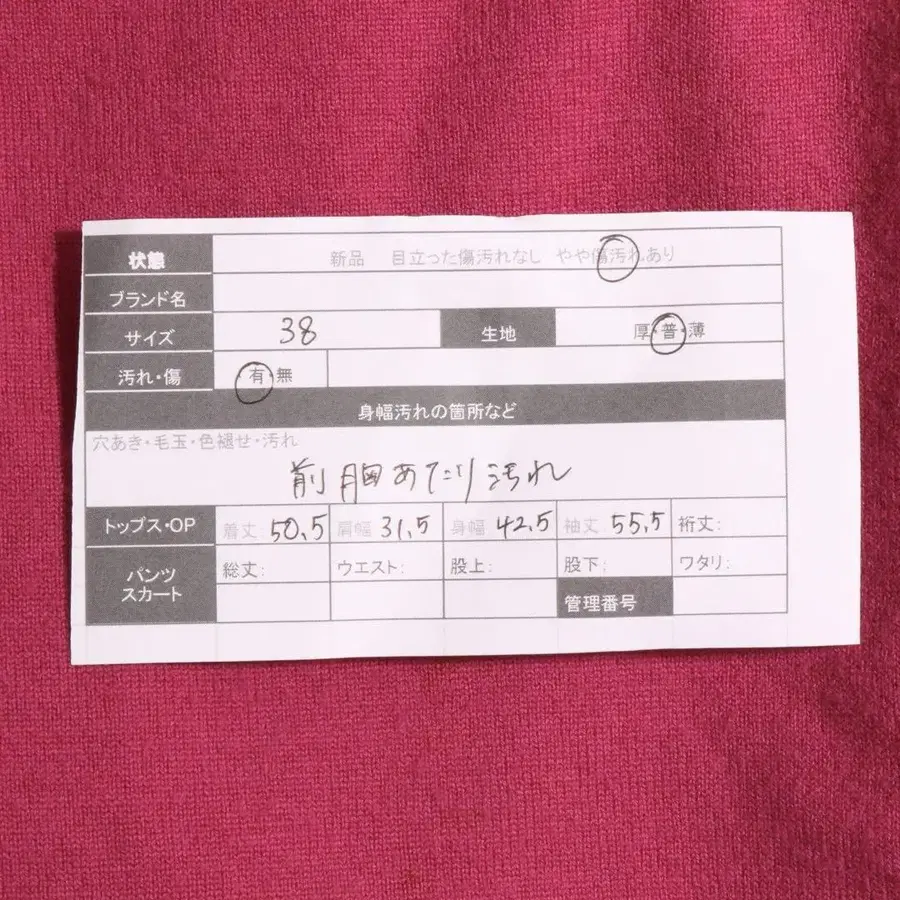 状態 新品 目立った傷汚れなし やや傷汚れあり
ブランド名
サイズ 38 生地 厚・普・薄
汚れ・傷 有・無
身幅汚れの箇所など
穴あき・毛玉・色褪せ・汚れ
前胸あたり汚れ
トップス・OP 着丈: 50.5 肩幅 31.5 身幅: 42.5 袖丈: 55.5 裄丈:
パンツ スカート 総丈: ウエスト: 股上: 股下: ワタリ:
管理番号